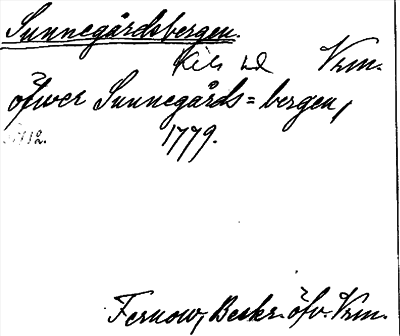 Sunnegårdsbergen.
Kils hd Vrm.
öfwer Sunnegårds=bergen,
1779.
Fernow, Beskr. öfv. Vrm.